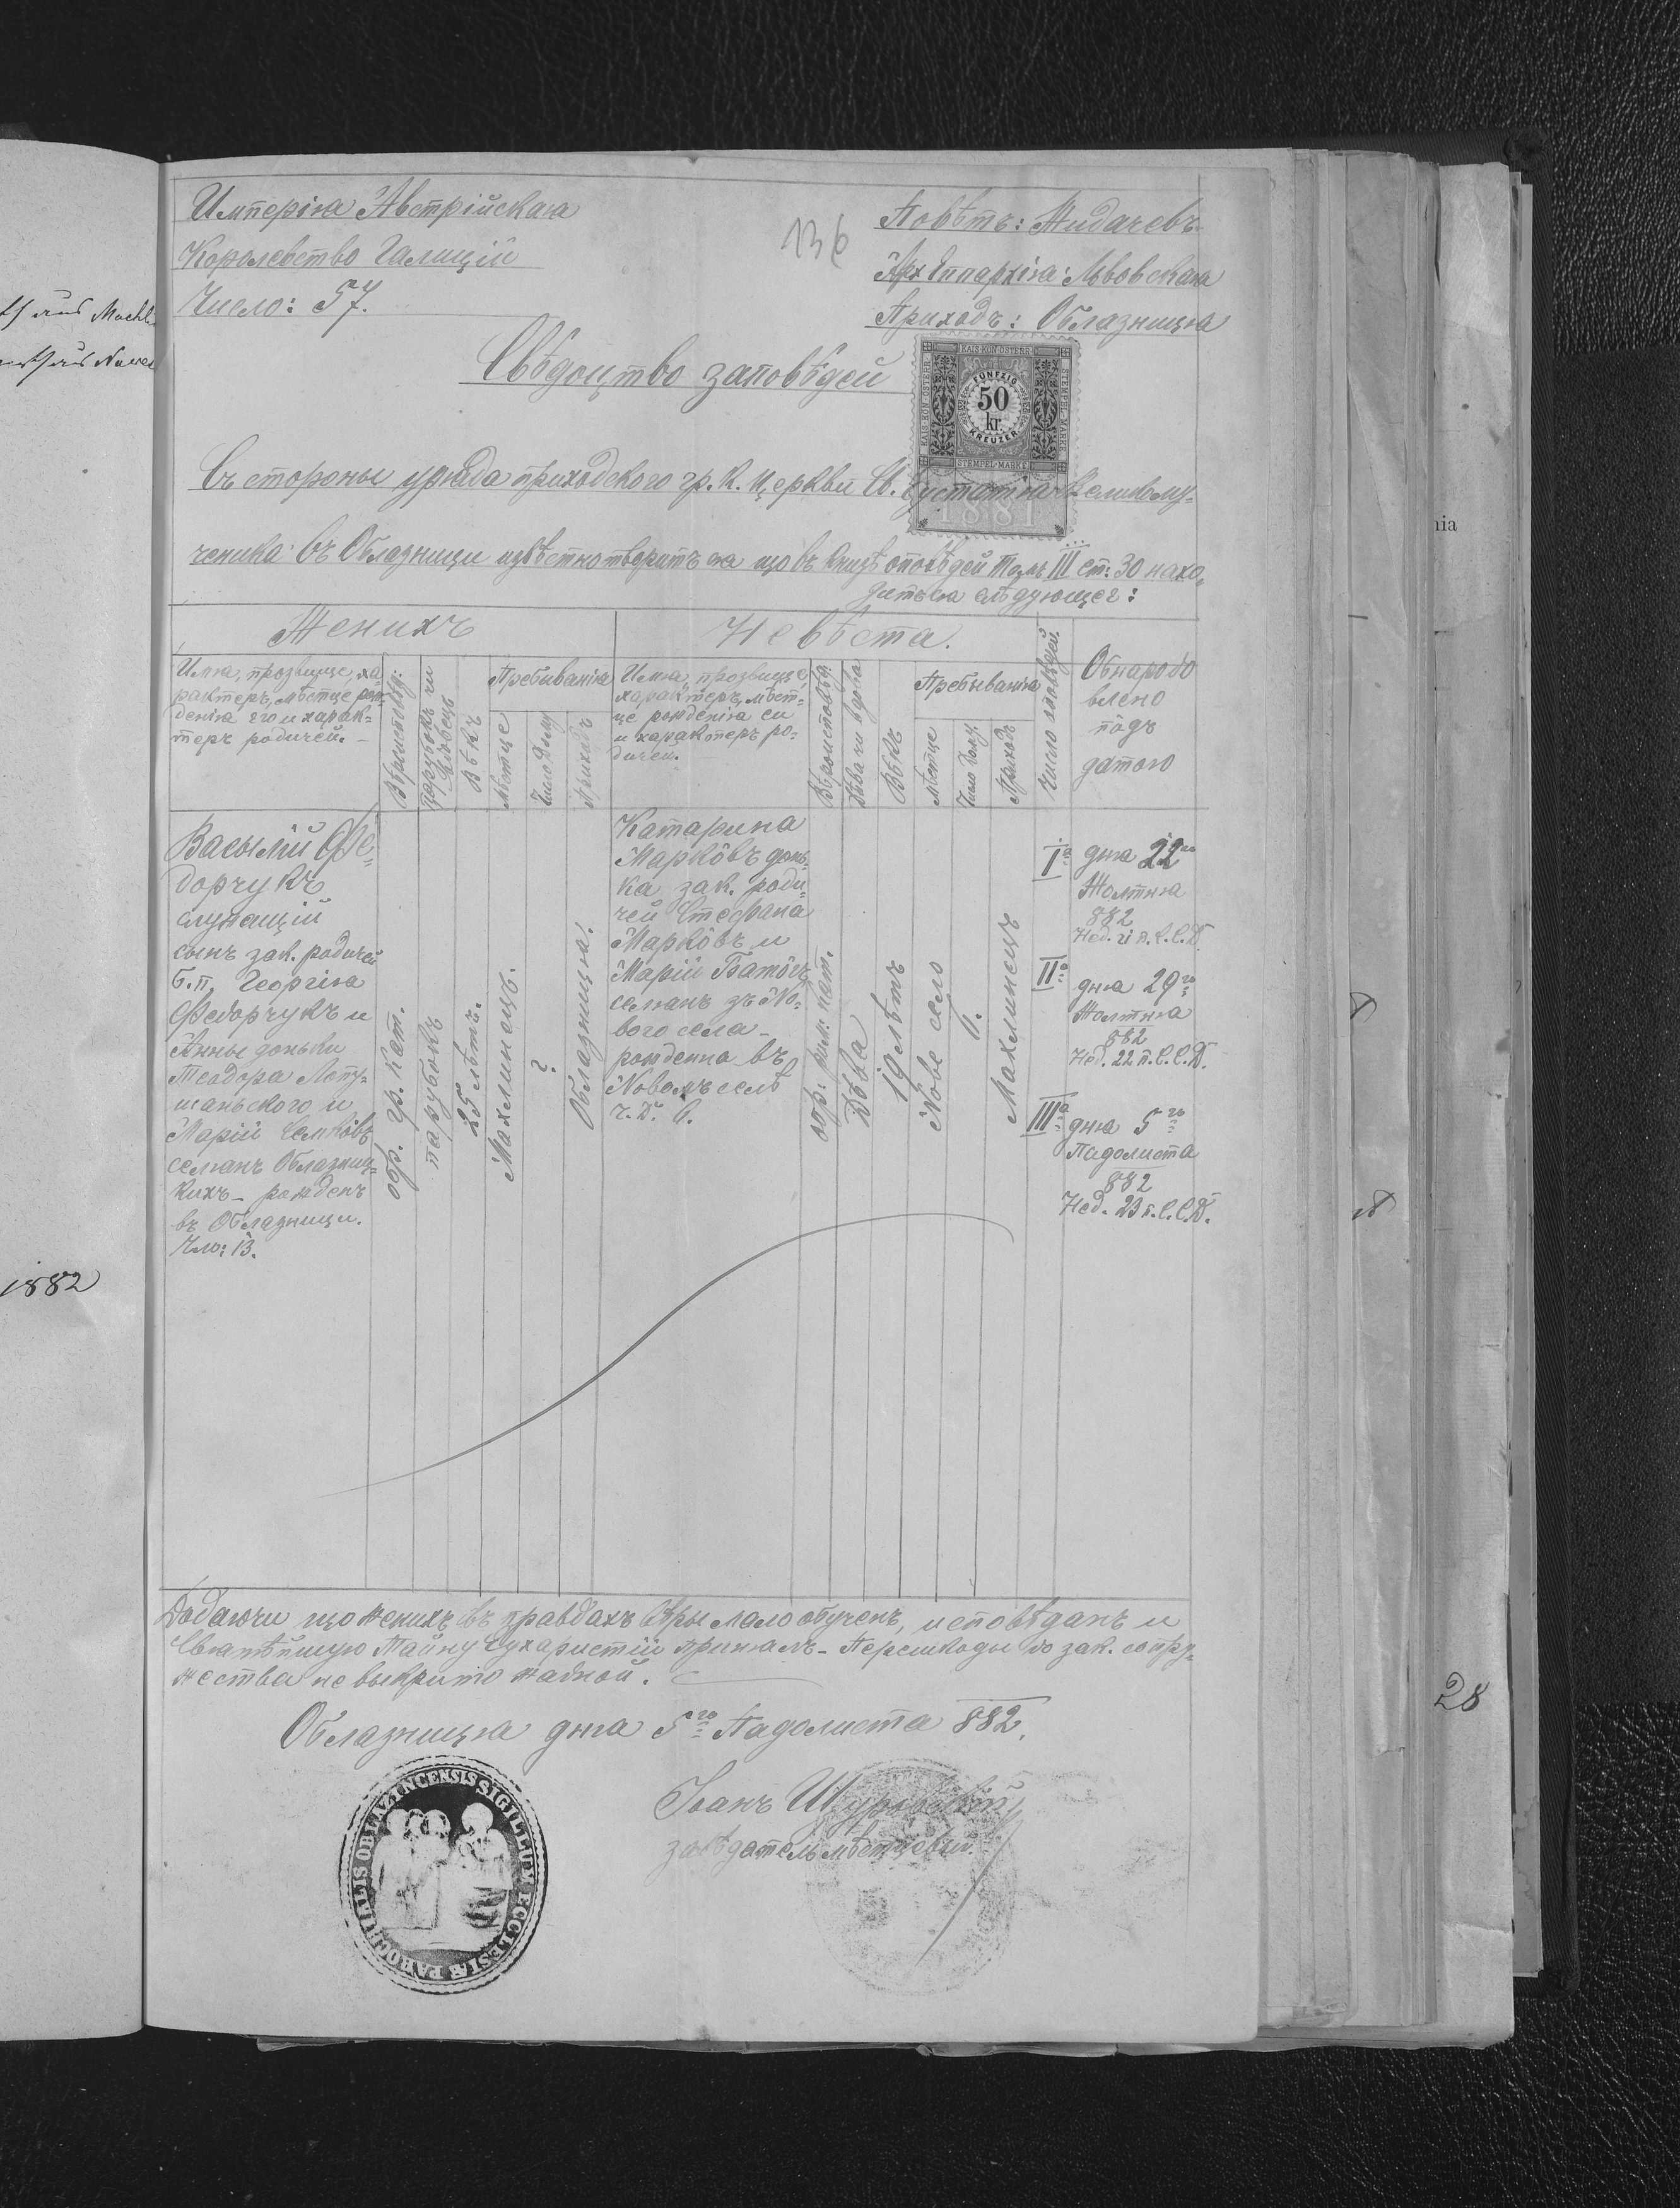 Имперія Австрійская
Королевство Галиціи
Число: 57.
136
Повѣтъ: Жидачевъ
АрхЕппархія: Львовская
Приходъ: Облазниця
Свѣдоцтво заповѣдей
KAIS. KÖN. ÖSTERR.
STEMPEL-MARKE
FÜNFZIG
50
kr.
KREUZER
STEMPEL-MARKE
1881
Съ стороны уряда приходского гр. К. Церкви Св. Еустатія Великому-
ченика въ Облазници извѣстнотворитъ ся що въ Книзѣ оповѣдей Томъ III ст: 30 нахо-
дитъся слѣдующеє:
Женихъ
Имя, прозвище, ха-
рактеръ, мѣстце рож-
денія его и харак-
теръ родичей. –
Вѣроисповѣд:
Парубокъ чи
вдовець
Вѣкъ
Пребыванія
Мѣстце
Число дому
Приходъ
Невѣста.
Имя, прозвище
характеръ, мѣст-
це рожденія еи
и характеръ ро-
дичей.
Вѣроисповѣд.
Дѣва чи вдова
Вѣкъ
Пребыванія
Мѣстце
Число дому
Приходъ
Число заповѣдей.
Обнародо
влено
подъ
датою
Василій Фе-
дорчукъ
служащій
сынъ зак. родичей
б.п. Георгія
Федорчукъ и
Анны доньки
Теодора Лопу-
шаньского и
Маріи Семковъ
селянъ Облазниц-
кихъ – рожденъ
въ Облазници.
Чло: 13.
обр. гр. Кат.
парубокъ
25 лѣтъ.
Махлинець.
?
Облазниця.
Катарина
Марковъ донь-
ка зак. роди-
чей Стефана
Марковъ и
Маріи Батогъ
селянъ зъ Но-
вого села –
рожденна въ
Новомъ селѣ
Ч. Д. 6.
обр: рим: кат.
Дѣва
19 лѣтъ
Нове село
6.
Махлинець
Iа дня 22го
Жолтня
882
Нед. 21 п. С. С. Д.
IIа дня 29го
Жолтня
882
Нед. 22 п. С. С. Д.
IIIа дня 5го
Падолиста
882
Нед. 23 п. С. С. Д.
Додаючи що женихъ въ правдахъ вѣры мало обученъ, исповѣданъ и
Святѣйшую Тайну Еухаристіи принялъ – Перешкоды до зак. супру-
жества не выкрито жадной.
Облазниця дня 5го Падолиста 882.
Іоанъ Щуровскій
завѣдатель мѣстцевый.
SIGILLUM ECCLESIÆ PAROCHIALIS OBLAZNICENSIS
1882
28
nia